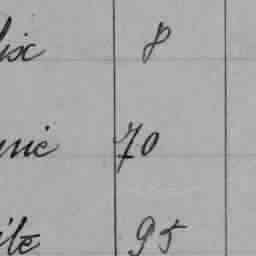 lix 8
nic 70
ile 95